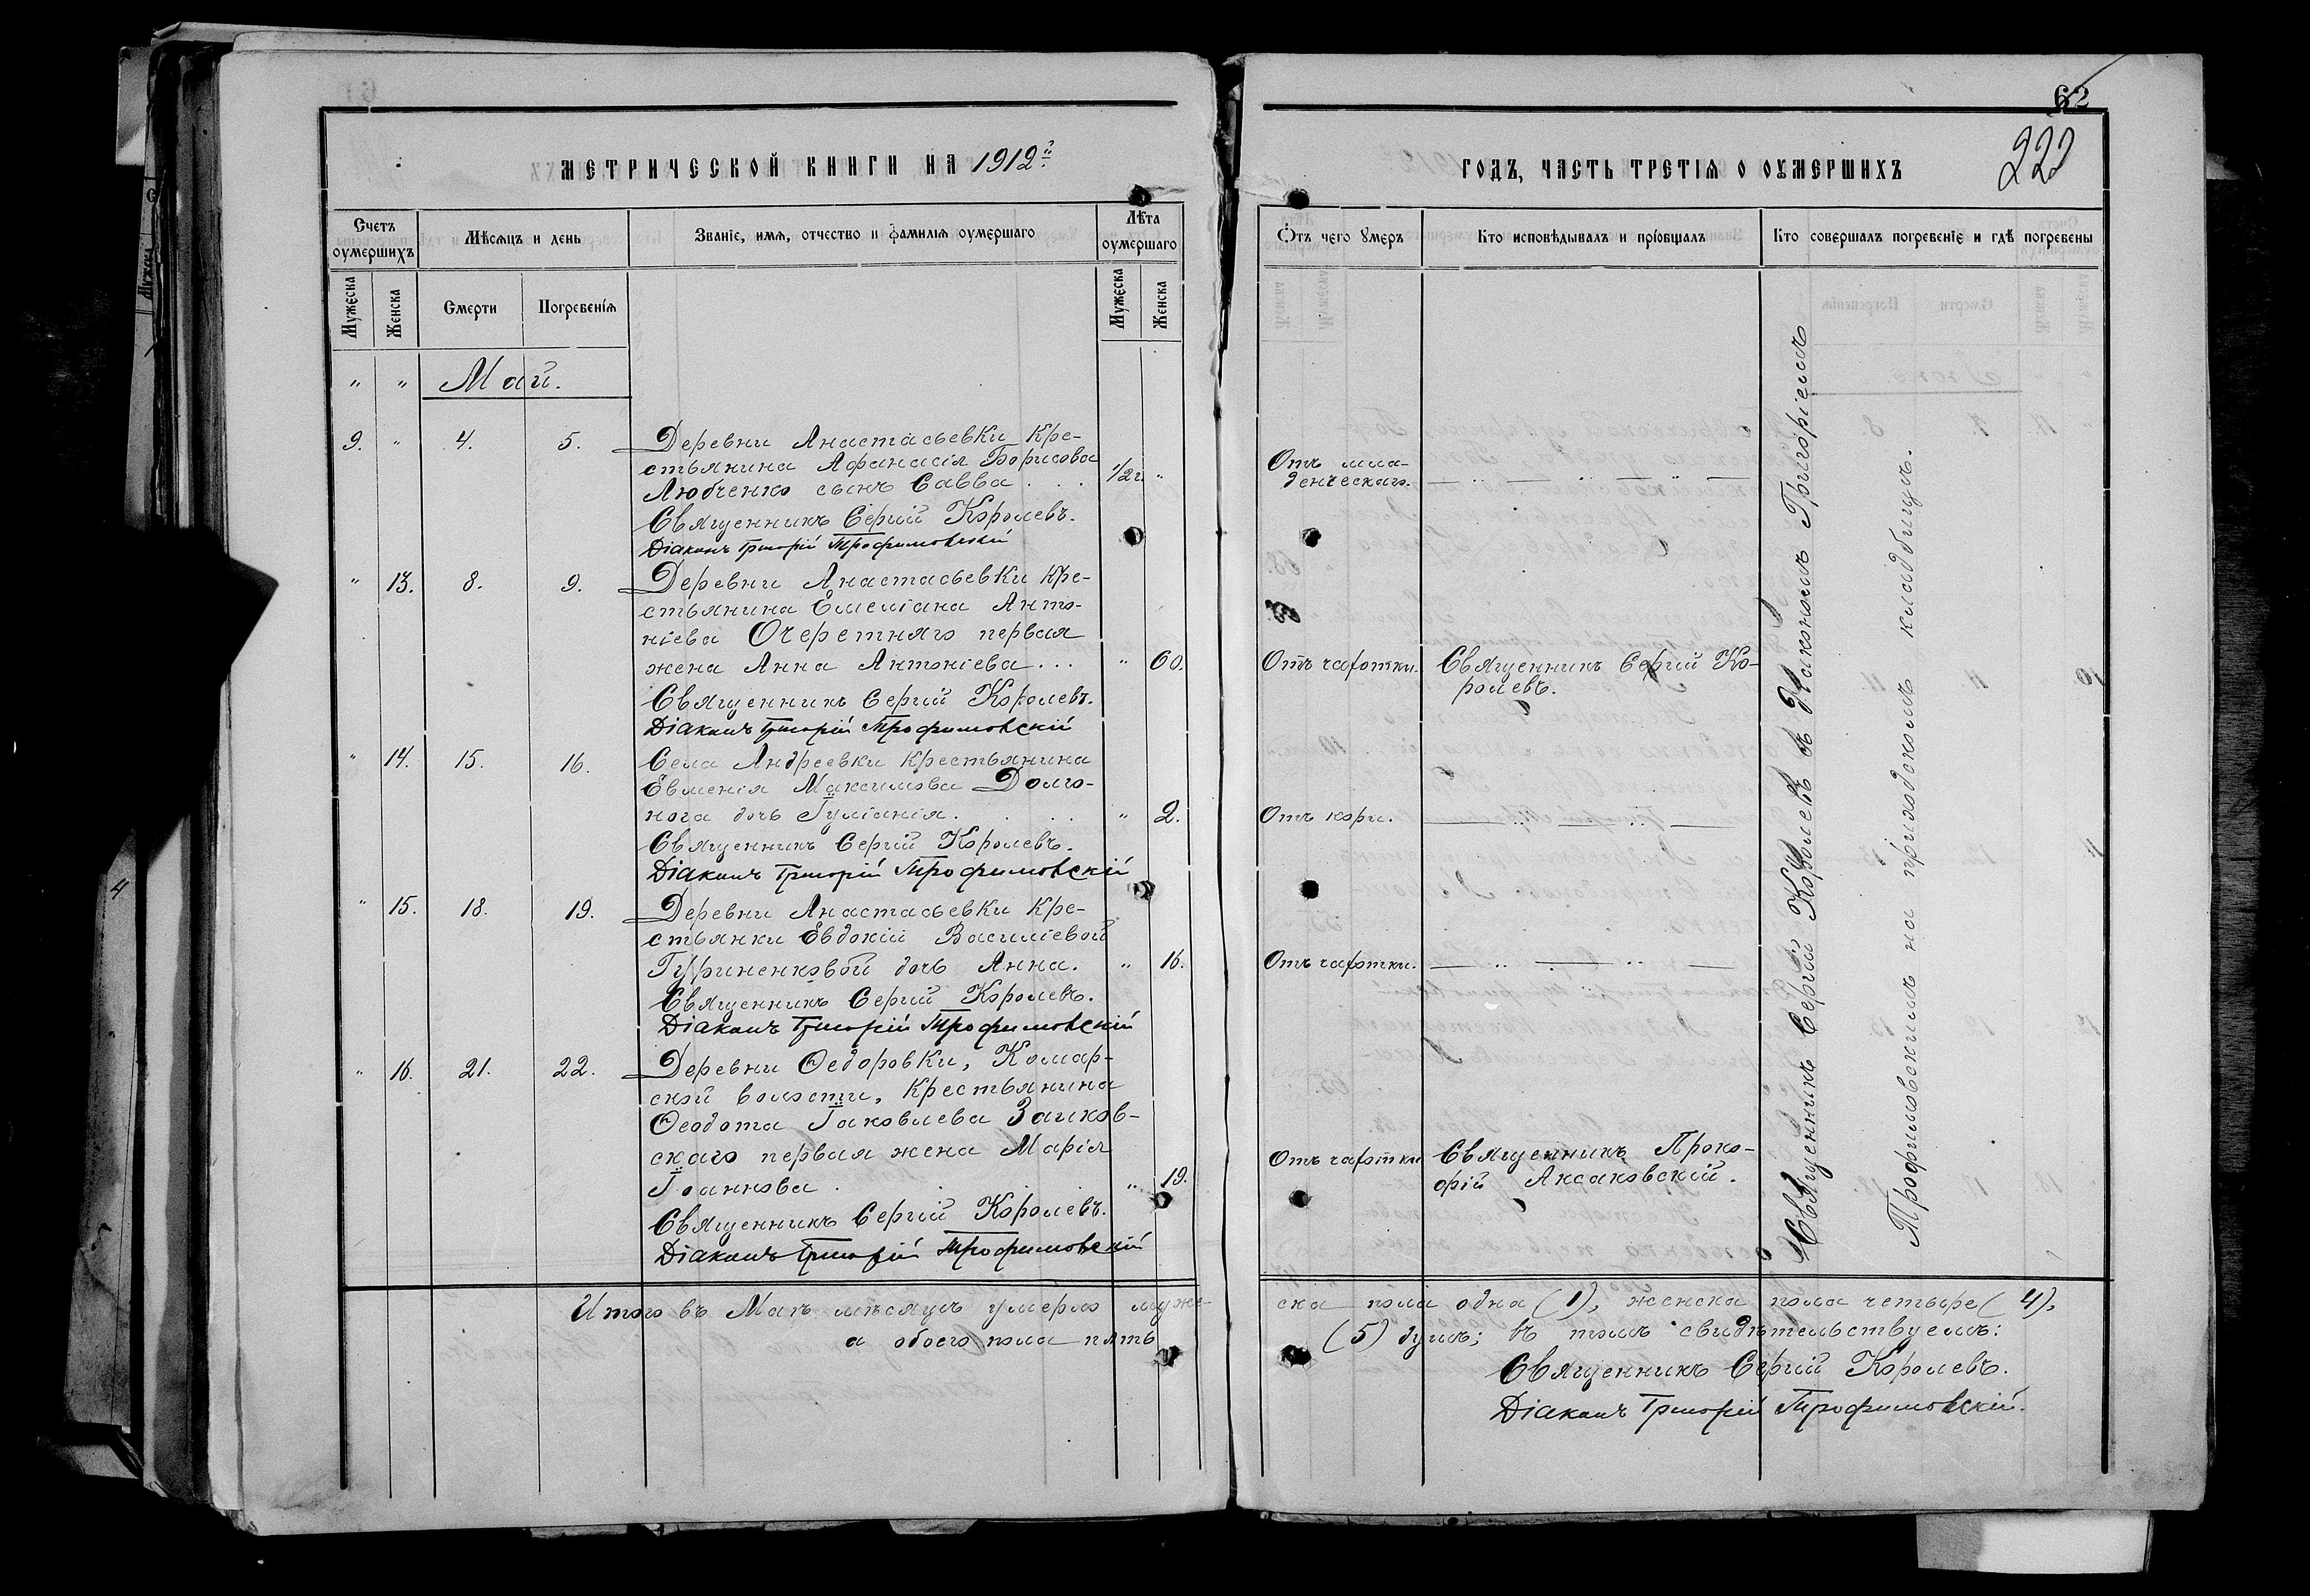 62
222
МЕТРИЧЕСКОЙ КНИГИ НА 1912 й
ГОДЪ, ЧАСТЬ ТРЕТІЯ О ОУМЕРШИХЪ
Счетъ оумершихъ
Мѣсяцъ и день
Званіе, имя, отчество и фамилія оумершаго
Лѣта оумершаго
Отъ чего умеръ
Кто исповѣдывалъ и пріобщалъ
Кто совершалъ погребеніе и гдѣ погребены
Мужеска
Женска
Смерти
Погребенія
Мужеска
Женска
" " Май.
9. " 4. 5. Деревни Анастасьевки кре-
стьянина Афанасія Борисова
Любченко сынъ Савва . . . 1/2 г. "
Отъ мла-
денческаго. — " — " — " —
Священникъ Сергій Королевъ.
Діаконъ Григорій Трофимовскій
" 13. 8. 9. Деревни Анастасьевки кре-
стьянина Емеліана Анто-
ніева Очеретняго первая
жена Анна Антоніева . . . " 60.
Отъ чахотки. Священникъ Сергій Ко-
ролевъ.
Священникъ Сергій Королевъ.
Діаконъ Григорій Трофимовскій
" 14. 15. 16. Села Андреевки крестьянина
Евменія Максимова Долго-
нога дочь Іуліанія. . . . " 2.
Отъ кори. — " — " —
Священникъ Сергій Королевъ.
Діаконъ Григорій Трофимовскій
" 15. 18. 19. Деревни Анастасьевки кре-
стьянки Евдокіи Василіевой
Гуриненковой дочь Анна. " 16.
Отъ чахотки. — " — " —
Священникъ Сергій Королевъ.
Діаконъ Григорій Трофимовскій
" 16. 21. 22. Деревни Ѳедоровки, Комар-
ской волости, крестьянина
Ѳеодота Іаковлева Заиков-
скаго первая жена Марія
Іоаннова . . . " 19.
Отъ чахотки Священникъ Проко-
фій Аксаковскій.
Священникъ Сергій Королевъ.
Діаконъ Григорій Трофимовскій
Священникъ Сергій Королевъ съ Діакономъ Григоріемъ
Трофимовскимъ на приходскомъ кладбищѣ.
Итого въ Маѣ мѣсяцѣ умерло муже-
ска пола одна (1), женска пола четыре (4),
а обоего пола пять
(5) душъ; въ томъ свидѣтельствуемъ:
Священникъ Сергій Королевъ.
Діаконъ Григорій Трофимовскій.